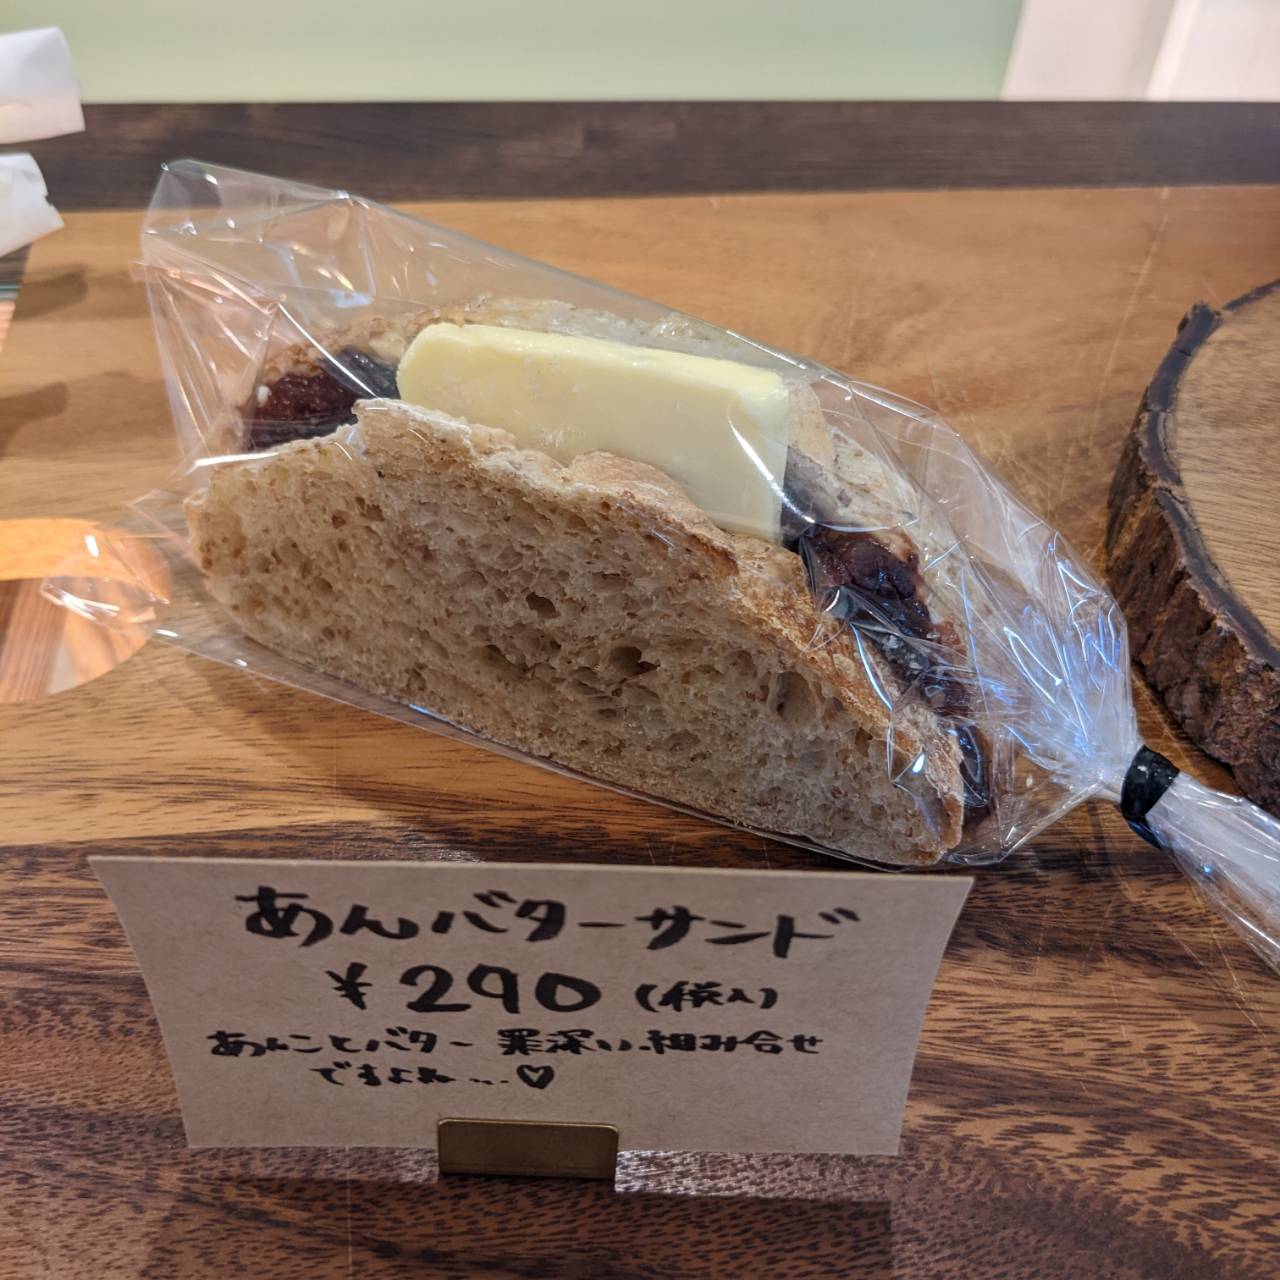 あんバターサンド
¥290（税入）
あんことバター 罪深い組み合せ
ですよね...♡